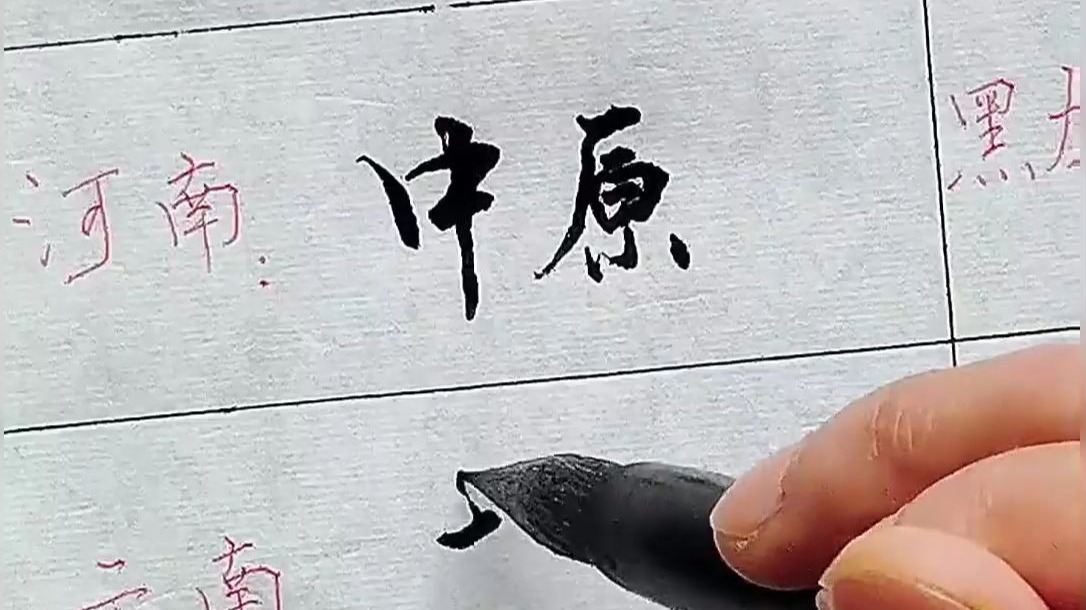 河南: 中原
黑
云南